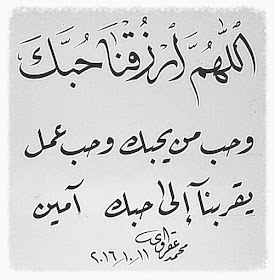 اللهم ارزقنا حبك
وحب من يحبك وحب عمل
يقربنا إلى حبك آمين
محمد عقراوي
٢٠١٦/١٠/١١